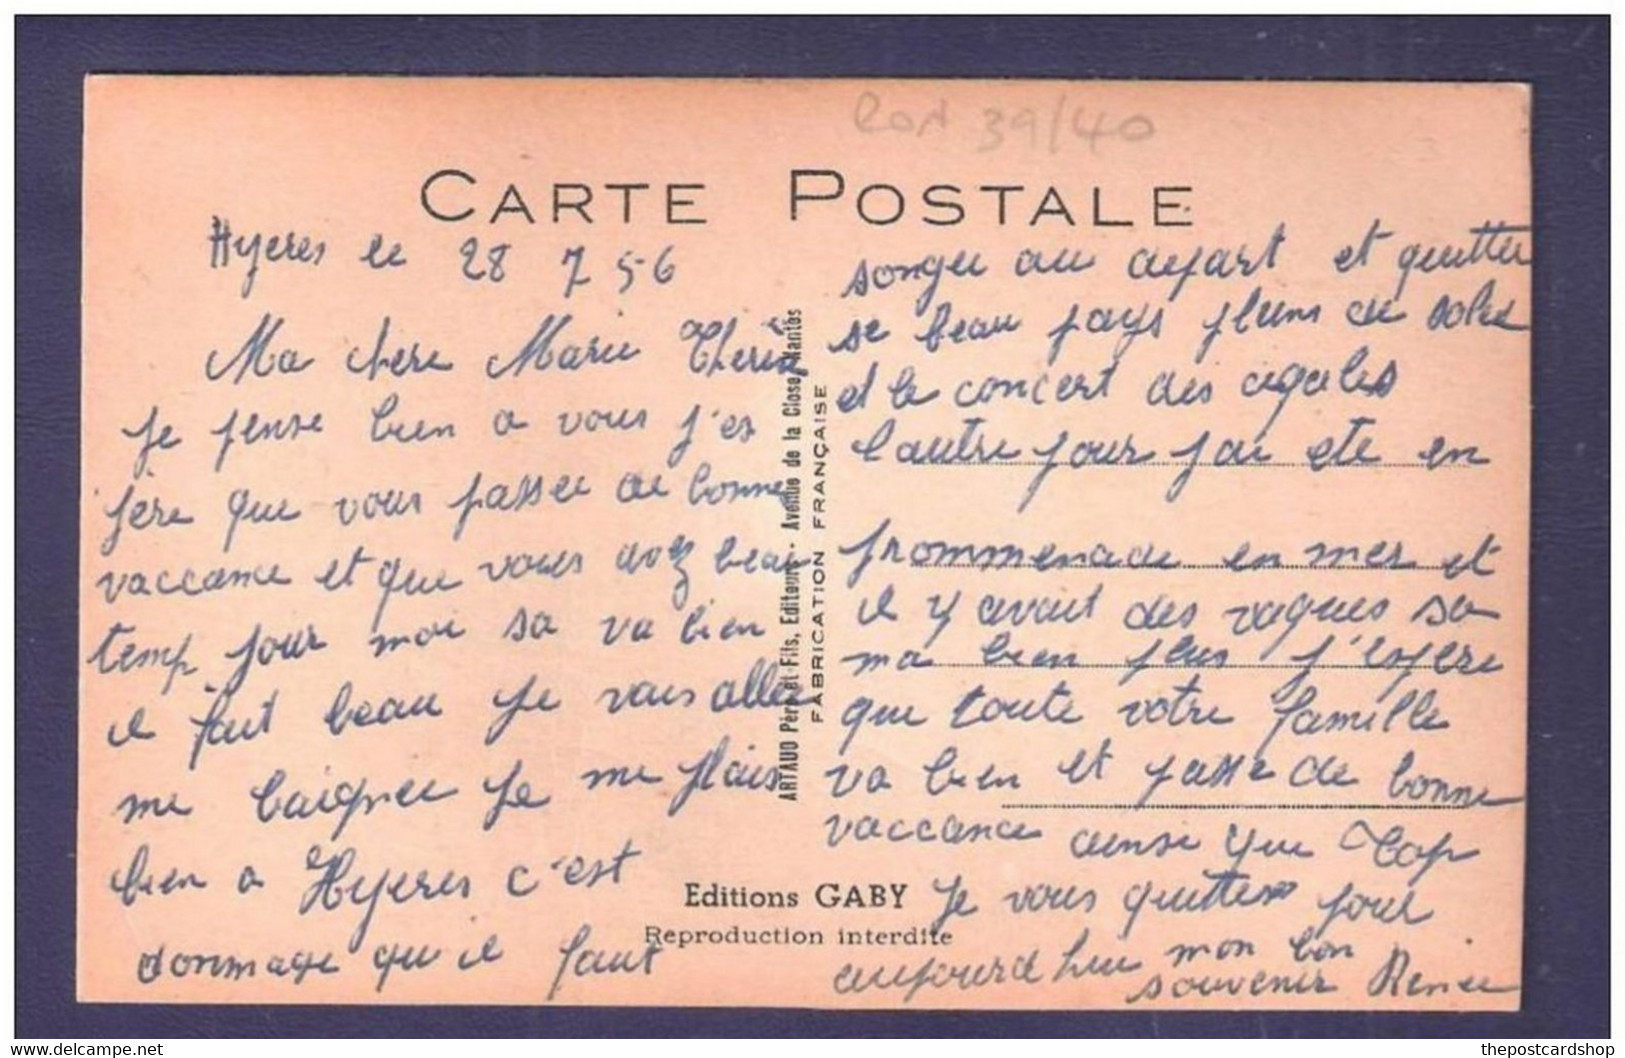 39/40
CARTE POSTALE
Hyeres le 28 7 56
Ma chere Marie Therese
Je pense bien a vous j'es
père que vous passee de bonne
vaccance et que vous avez beau
temp pour moi sa va bien
il fait beau je vais allee
me baignee je me plais
bien a Hyeres c'est
dommage qu il faut
songee au depart et quittee
se beau pays pleins de soleil
et le concert des cigales
l'autre jour j'ai ete en
prommenade en mer et
il y avait des vagues sa
ma bien plus j'espere
que toute votre famille
va bien et passe de bonne
vaccance ainsi que Top
Je vous quittes pour
aujourd hui mon bon
souvenir Renee
ARTAUD Père et Fils, Editeurs - Avenue de la Close, Nantes
FABRICATION FRANÇAISE
Editions GABY
Reproduction interdite
delcampe.net
thepostcardshop